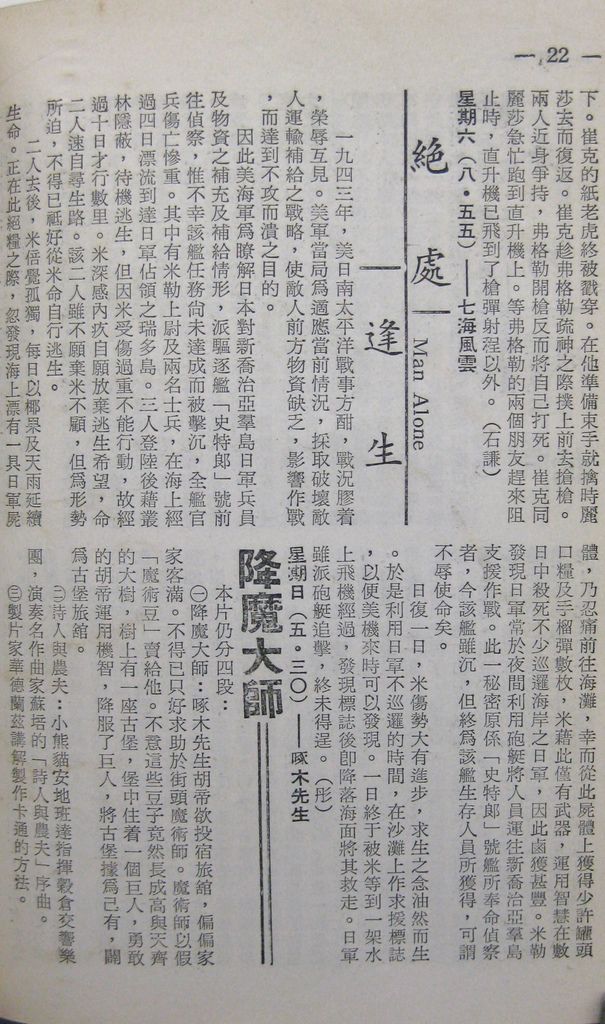 — 22 —
下。崔克的紙老虎終被戳穿。在他準備束手就擒時麗
莎去而復返。崔克趁弗格勒疏神之際撲上前去搶槍。
兩人近身爭持，弗格勒開槍反而將自己打死。崔克同
麗莎急忙跑到直升機上。等弗格勒的兩個朋友趕來阻
止時，直升機已飛到了槍彈射程以外。（石謙）
星期六（八·五五）——七海風雲
絕處逢生
Man Alone
一九四三年，美日南太平洋戰事方酣，戰況膠着
，榮辱互見。美軍當局爲適應當前情況，採取破壞敵
人運輸補給之戰略，使敵人前方物資缺乏，影響作戰
，而達到不攻而潰之目的。
因此美海軍爲瞭解日本對新喬治亞羣島日軍兵員
及物資之補充及補給情形，派驅逐艦「史特郎」號前
往偵察，惟不幸該艦任務尙未達成而被擊沉，全艦官
兵傷亡慘重。其中有米勒上尉及兩名士兵，在海上經
過四日漂流到達日軍佔領之瑞多島。三人登陸後藉叢
林隱蔽，待機逃生，但因米受傷過重不能行動，故經
過十日才行數里。米深感內疚自願放棄逃生希望，命
二人速自尋生路。該二人雖不願棄米不顧，但爲形勢
所迫，不得已祗好從米命自行逃生。
二人去後，米倍覺孤獨，每日以椰果及天雨延續
生命。正在此絕糧之際，忽發現海上漂有一具日軍屍
體，乃忍痛前往海灘，幸而從此屍體上獲得少許罐頭
口糧及手榴彈數枚，米藉此僅有武器，運用智慧在數
日中殺死不少巡邏海岸之日軍，因此鹵獲甚豐。米勒
發現日軍常於夜間利用砲艇將人員運往新喬治亞羣島
支援作戰。此一秘密原係「史特郎」號艦所奉命偵察
者，今該艦雖沉，但終爲該艦生存人員所獲得，可謂
不辱使命矣。
日復一日，米傷勢大有進步，求生之念油然而生
。於是利用日軍不巡邏的時間，在沙灘上作求援標誌
，以便美機來時可以發現。一日終于被米等到一架水
上飛機經過，發現標誌後卽降落海面將其救走。日軍
雖派砲艇追擊，終未得逞。（彤）
星期日（五·三〇）——啄木先生
降魔大師
本片仍分四段：
㊀降魔大師：啄木先生胡帝欲投宿旅舘，偏偏家
家客滿。不得已只好求助於街頭魔術師。魔術師以假
「魔術豆」賣給他。不意這些豆子竟然長成高與天齊
的大樹，樹上有一座古堡，堡中住着一個巨人，勇敢
的胡帝運用機智，降服了巨人，將古堡據爲己有，闢
爲古堡旅舘。
㊁詩人與農夫：小熊貓安地班達指揮穀倉交響樂
團，演奏名作曲家蘇培的「詩人與農夫」序曲。
㊂製片家華德蘭茲講解製作卡通的方法。